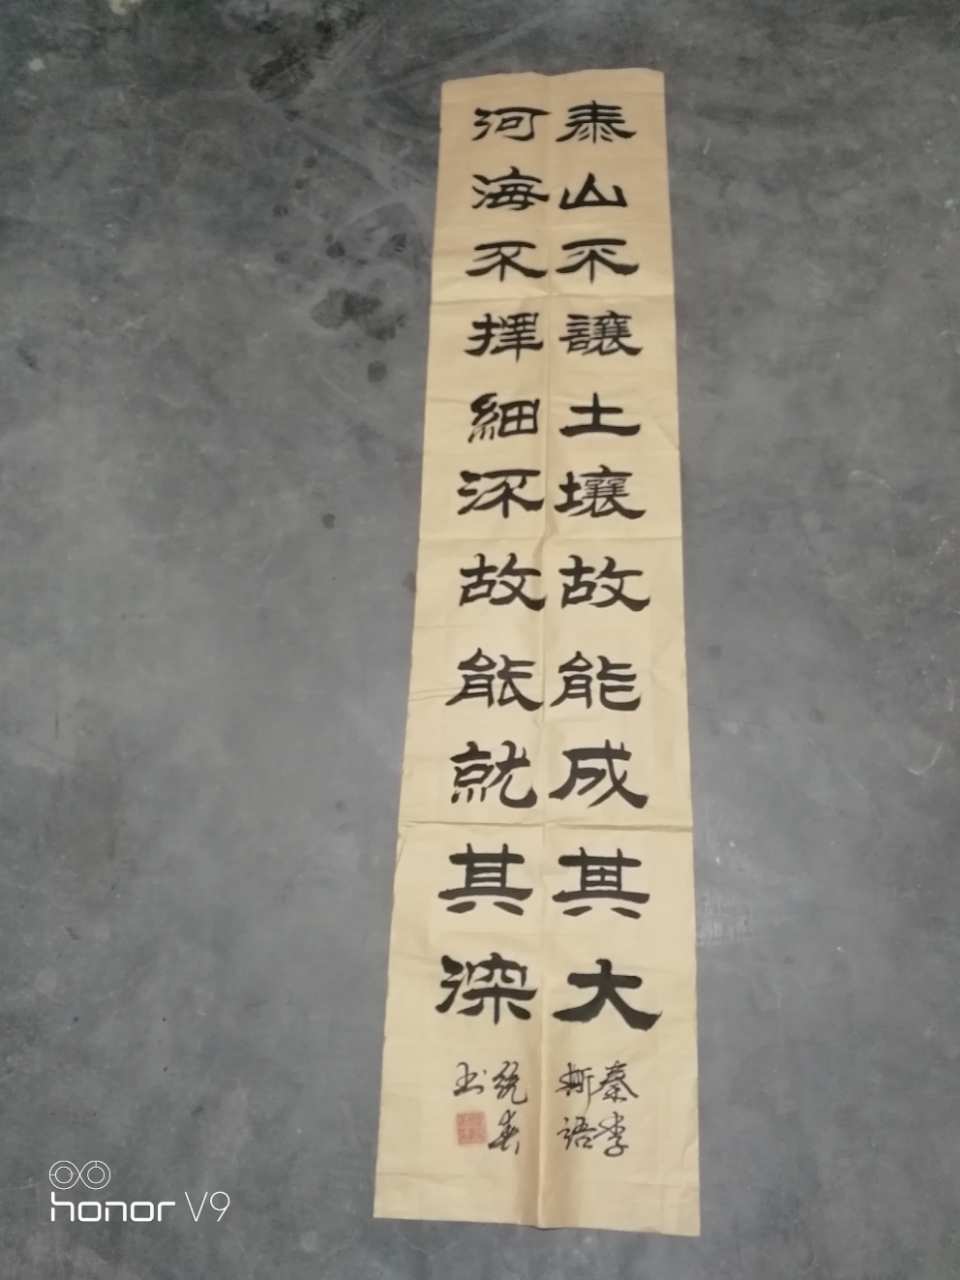 泰山不讓土壤故能成其大
秦李
斯語
河海不擇細流故能就其深
春
书
honor V9